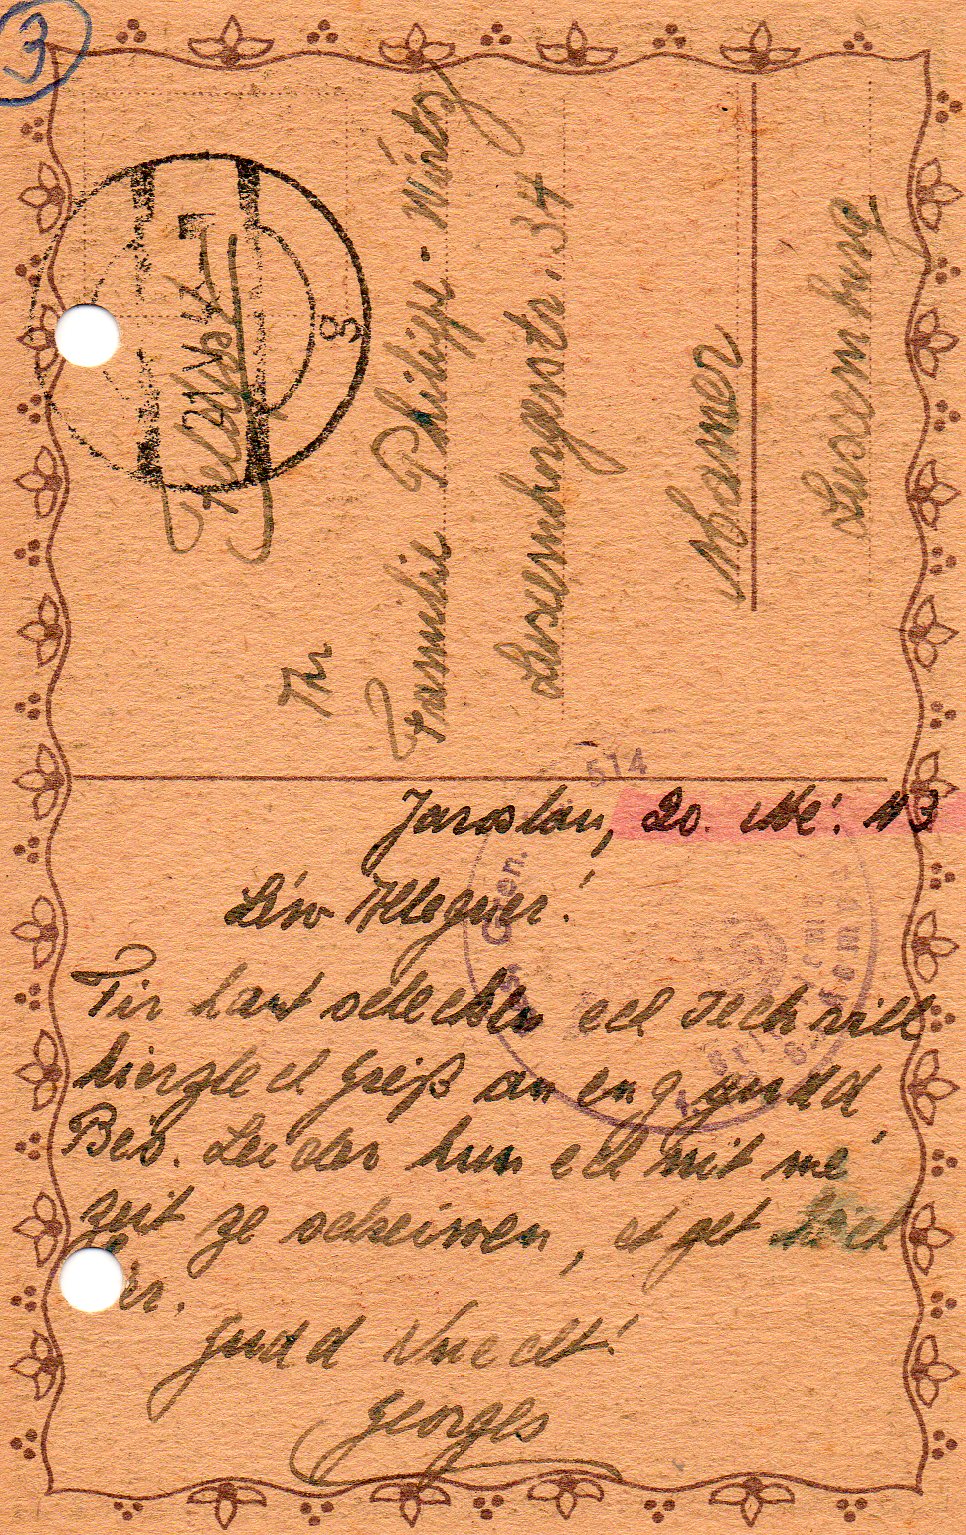 3
Feldpost
8
An
Familie Philippe-Wirtz
Luxemburgerstr. 34
Mamer
Luxemburg
514
Jaroslau, 20. Mé! 43
Léiw Alleguer!
Fir haut schecken ech Iech vill
hierzlech Gréiß an eng gudd
Bės. Leider hun ech nit mé
zeit ze schreiwen, et get héich
Gudd Nuecht!
Georges